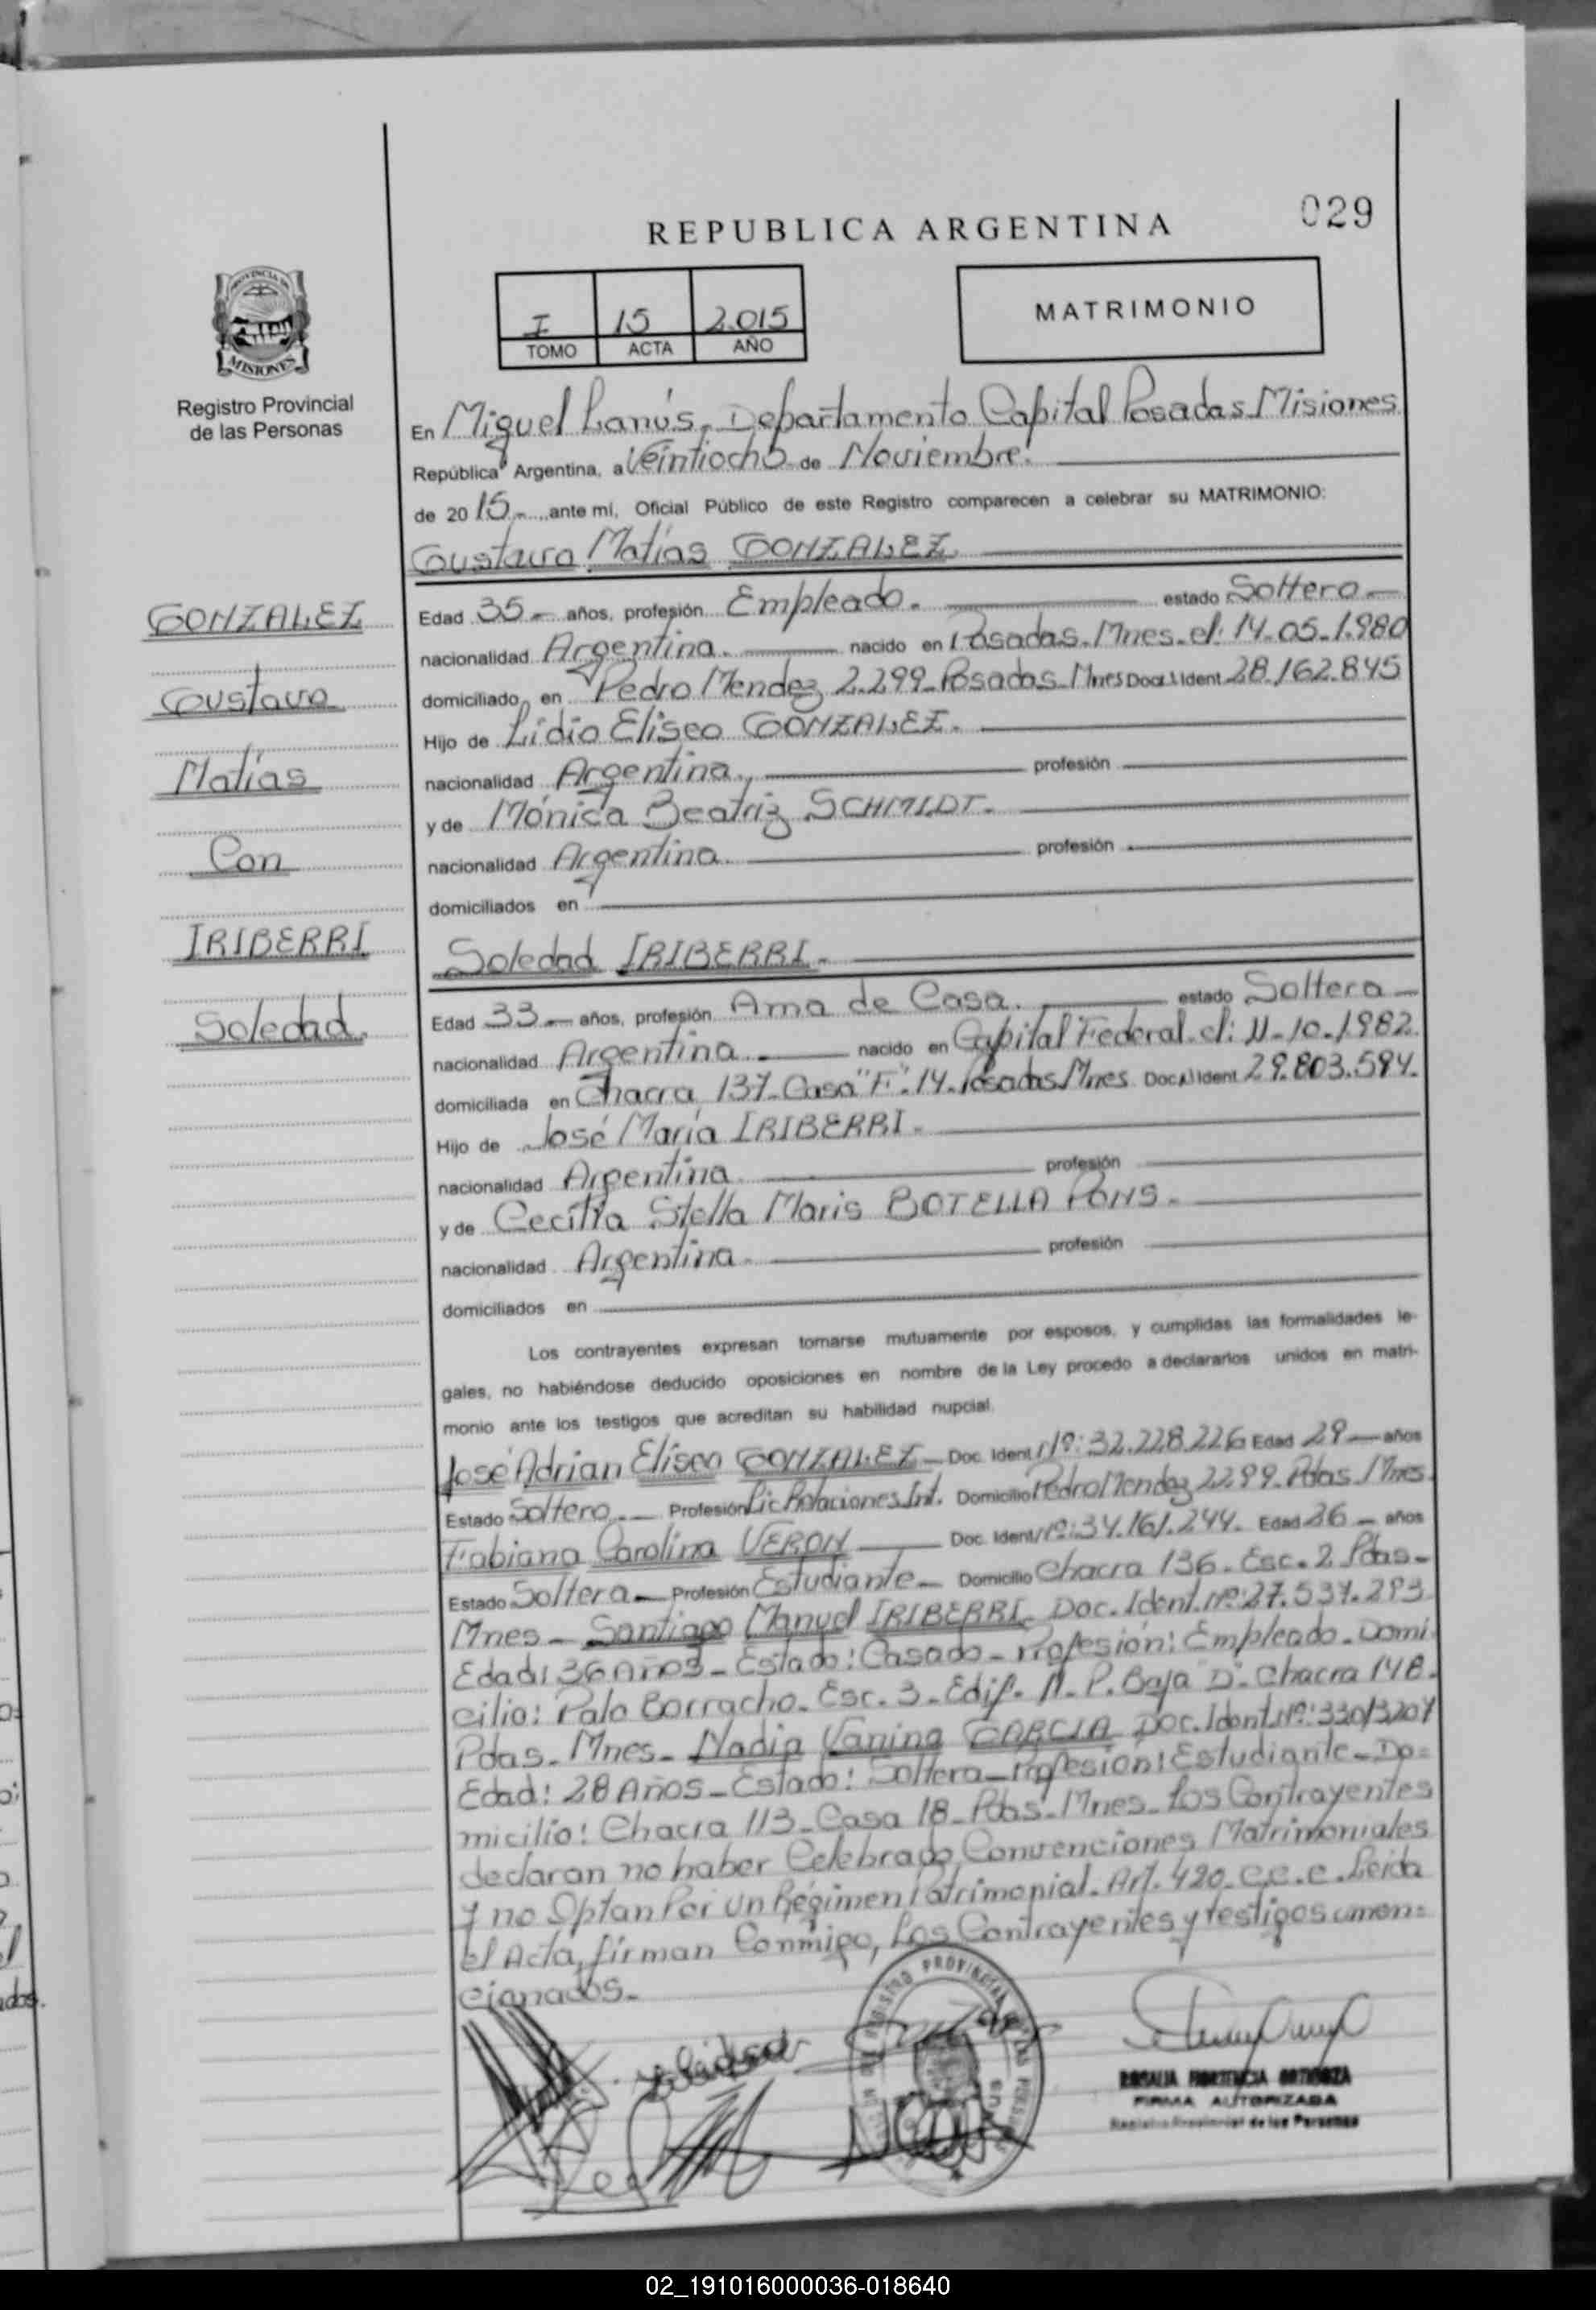 029
REPUBLICA ARGENTINA
I 15 2.015
TOMO ACTA AÑO
MATRIMONIO
PROVINCIA DE
MISIONES
Registro Provincial
de las Personas
En Miguel Lanús. Departamento Capital Posadas Misiones
República Argentina, a Veintiocho de Noviembre.
de 2015 ante mí, Oficial Público de este Registro comparecen a celebrar su MATRIMONIO:
Gustavo Matías GONZALEZ
Edad 35 años, profesión Empleado. estado Soltero
nacionalidad Argentina. nacido en Posadas. Mnes. el: 14-05-1.980
domiciliado en Pedro Mendez 2.299 Posadas Mnes Doc. Ident. 28.162.845
Hijo de Lidio Eliseo GONZALEZ.
nacionalidad Argentina. profesión
y de Mónica Beatriz SCHMIDT.
nacionalidad Argentina. profesión
domiciliados en
Soledad IRIBERRI.
Edad 33 años, profesión Ama de Casa. estado Soltera
nacionalidad Argentina. nacido en Capital Federal. el: 11-10-1.982
domiciliada en Chacra 137 Casa "F" 14 Posadas Mnes Doc. Ident. 29.803.594.
Hijo de José María IRIBERRI.
nacionalidad Argentina profesión
y de Cecilia Stella Maris BOTELLA PONS.
nacionalidad Argentina. profesión
domiciliados en
GONZALEZ
Gustavo
Matías
Con
IRIBERRI
Soledad.
Los contrayentes expresan tomarse mutuamente por esposos, y cumplidas las formalidades le-
gales, no habiéndose deducido oposiciones en nombre de la Ley procedo a declararlos unidos en matri-
monio ante los testigos que acreditan su habilidad nupcial.
José Adrian Eliseo GONZALEZ Doc. Ident. Nº: 32.228.226 Edad 29 años
Estado Soltero Profesión Lic Relaciones Int. Domicilio Pedro Mendez 2299 Pdas Mnes
Fabiana Carolina VERON Doc. Ident. Nº: 34.161.244. Edad 26 años
Estado Soltera Profesión Estudiante Domicilio Chacra 136. Esc. 2 Pdas-
Mnes - Santiago Manuel IRIBERRI Doc. Ident. Nº: 27.537.293
Edad: 36 Años - Estado: Casado - Profesión: Empleado. Domi
cilio: Palo Borracho. Esc. 3. Edif. P. Baja "D" Chacra 148.
Pdas. Mnes - Nadia Vanina GARCIA Doc. Ident. Nº: 33013207
Edad: 28 Años - Estado: Soltera - Profesión: Estudiante - Do-
micilio: Chacra 113 - Casa 18 - Pdas. Mnes. Los Contrayentes
declaran no haber Celebrado Convenciones Matrimoniales
y no Optan Por Un Régimen Patrimonial. Art. 420. C.C.C. Leída
el Acta, firman Conmigo, Los Contrayentes y testigos
cionados.
REGISTRO PROVINCIAL DE LAS PERSONAS
FIRMA AUTORIZADA
Registro Provincial de las Personas
02_191016000036-018640